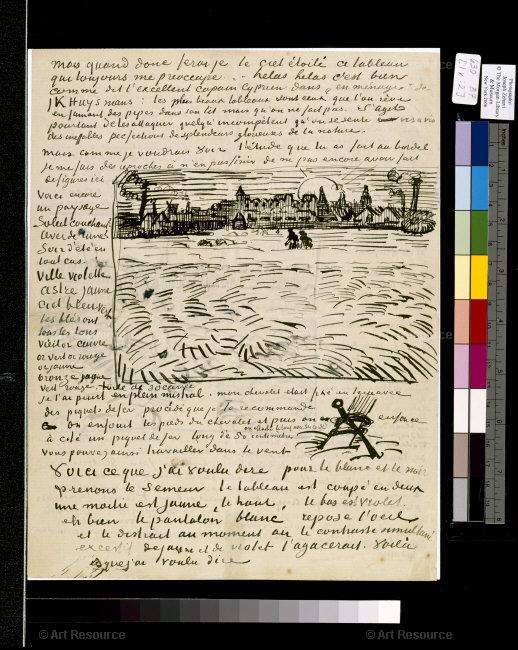 mais quand donc ferai je le ciel étoilé ce tableau
qui toujours me préoccupe .. hélas hélas c'est bien
comme dit l'excellent copain Cyprien dans "en ménage" de
JK Huysmans: les plus beaux tableaux sont ceux que l'on rêve
en fumant des pipes dans son lit mais qu'on ne fait pas. S'agit
pourtant de les attaquer quelqu'incompétent qu'on se sente vis à vis
des ineffables perfections de splendeurs glorieuses de la nature.
Mais comme je voudrais voir l'étude que tu as fait au bordel
Je me fais des reproches à n'en pas finir de ne pas encore avoir fait
de figures ici
Voici encore
un paysage
Soleil couchant?
lever de lune?
Soir d'été en
tout cas.
Ville violette
astre jaune
ciel bleu vert
les blés ont
tous les tons
vieil or cuivre
or vert or rouge
or jaune
bronze jaune
vert rouge. toile de 30 carrée
je l'ai peint en plein mistral. mon chevalet était fixé en terre avec
des piquets de fer procédé que je te recommande
on enfonce les pieds du chevalet et puis on enfonce
à côté un piquet de fer long de 50 centimètres
on attache le tout avec des cordes
vous pouvez ainsi travailler dans le vent
Voici ce que j'ai voulu dire pour le blanc et le noir
prenons le Semeur le tableau est coupé en deux
une moitié est jaune, le haut, le bas est violet.
eh bien le pantalon blanc repose l'oeil
et le distrait au moment où le contraste simultané
excessif de jaune et de violet l'agacerait. Voilà
ce que j'ai voulu dire
Photographer:
Joseph Zehavi
© The Morgan Library
& Museum
New York 2008
© Art Resource
© Art Resource